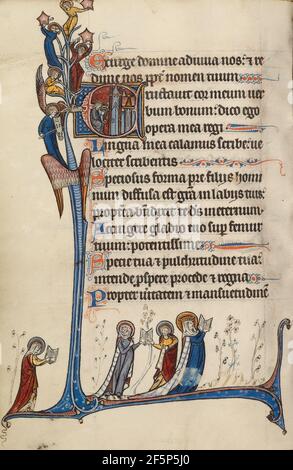 Exurge domine adiuua nos: et re
dime nos ꝓpt̄ nomen tuum
Eructauit cor meum uer
bum bonum: dico ego
opera mea regi
Lingua mea calamus scribe: ue
lociter scribentis
Speciosus forma pre filiis homi
num diffusa est gr̄a in labiis tuis:
propterea
Accingere gladio tuo sup femur
tuum: potentissime
Specie tua et pulchritudine tua:
intende prospere procede et regna
Propter ueritatem et mansuetudinē
alamy - 2F5P5J0